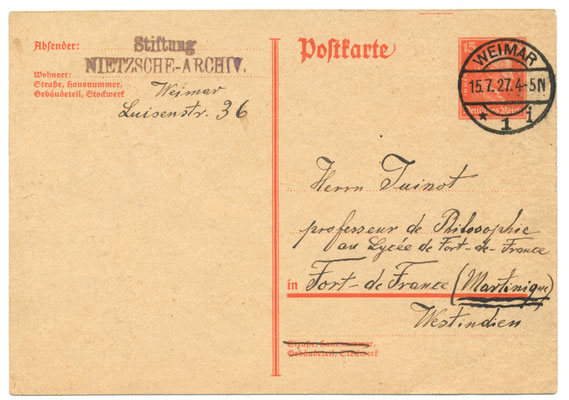 Absender:
Stiftung
NIETZSCHE-ARCHIV.
Wohnort:
Straße, Hausnummer,
Gebäudeteil, Stockwerk
Weimar
Luisenstr. 36
Postkarte
15
Deutsches Reich
WEIMAR
15.7.27.4-5N
* 1 i
Herrn Tuinot
professeur de Philosophie
au Lycée de Fort-de-France
in Fort-de France (Martinique)
Westindien
Straße, Hausnummer,
Gebäudeteil, Stockwerk